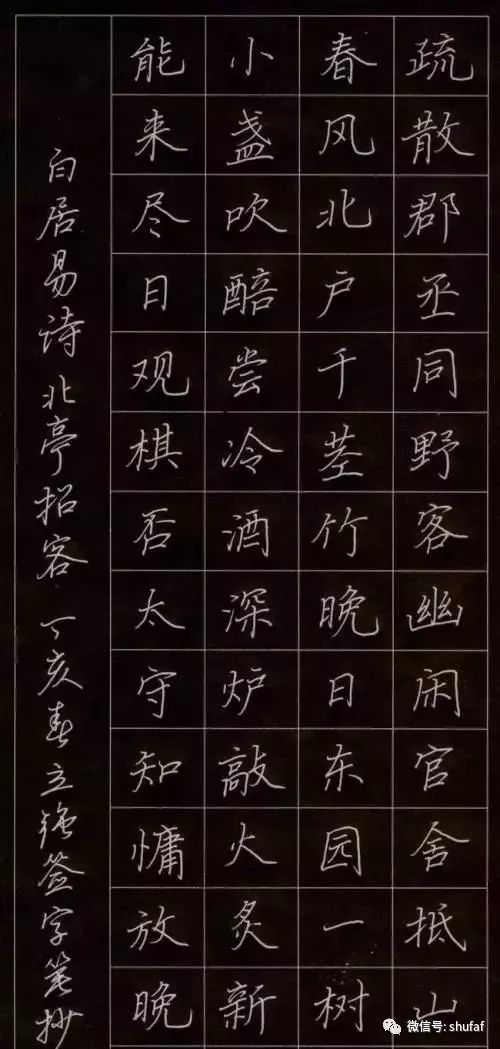 疏散郡丞同野客幽闲官舍抵山
春风北户千茎竹晚日东园一树
小盏吹醅尝冷酒深炉敲火炙新
能来尽日观棋否太守知慵放晚
白居易诗 北亭招客 丁亥春立强签字笔抄
微信号: shufaf